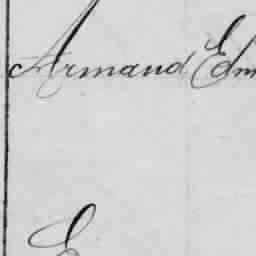 Armand Edm
E